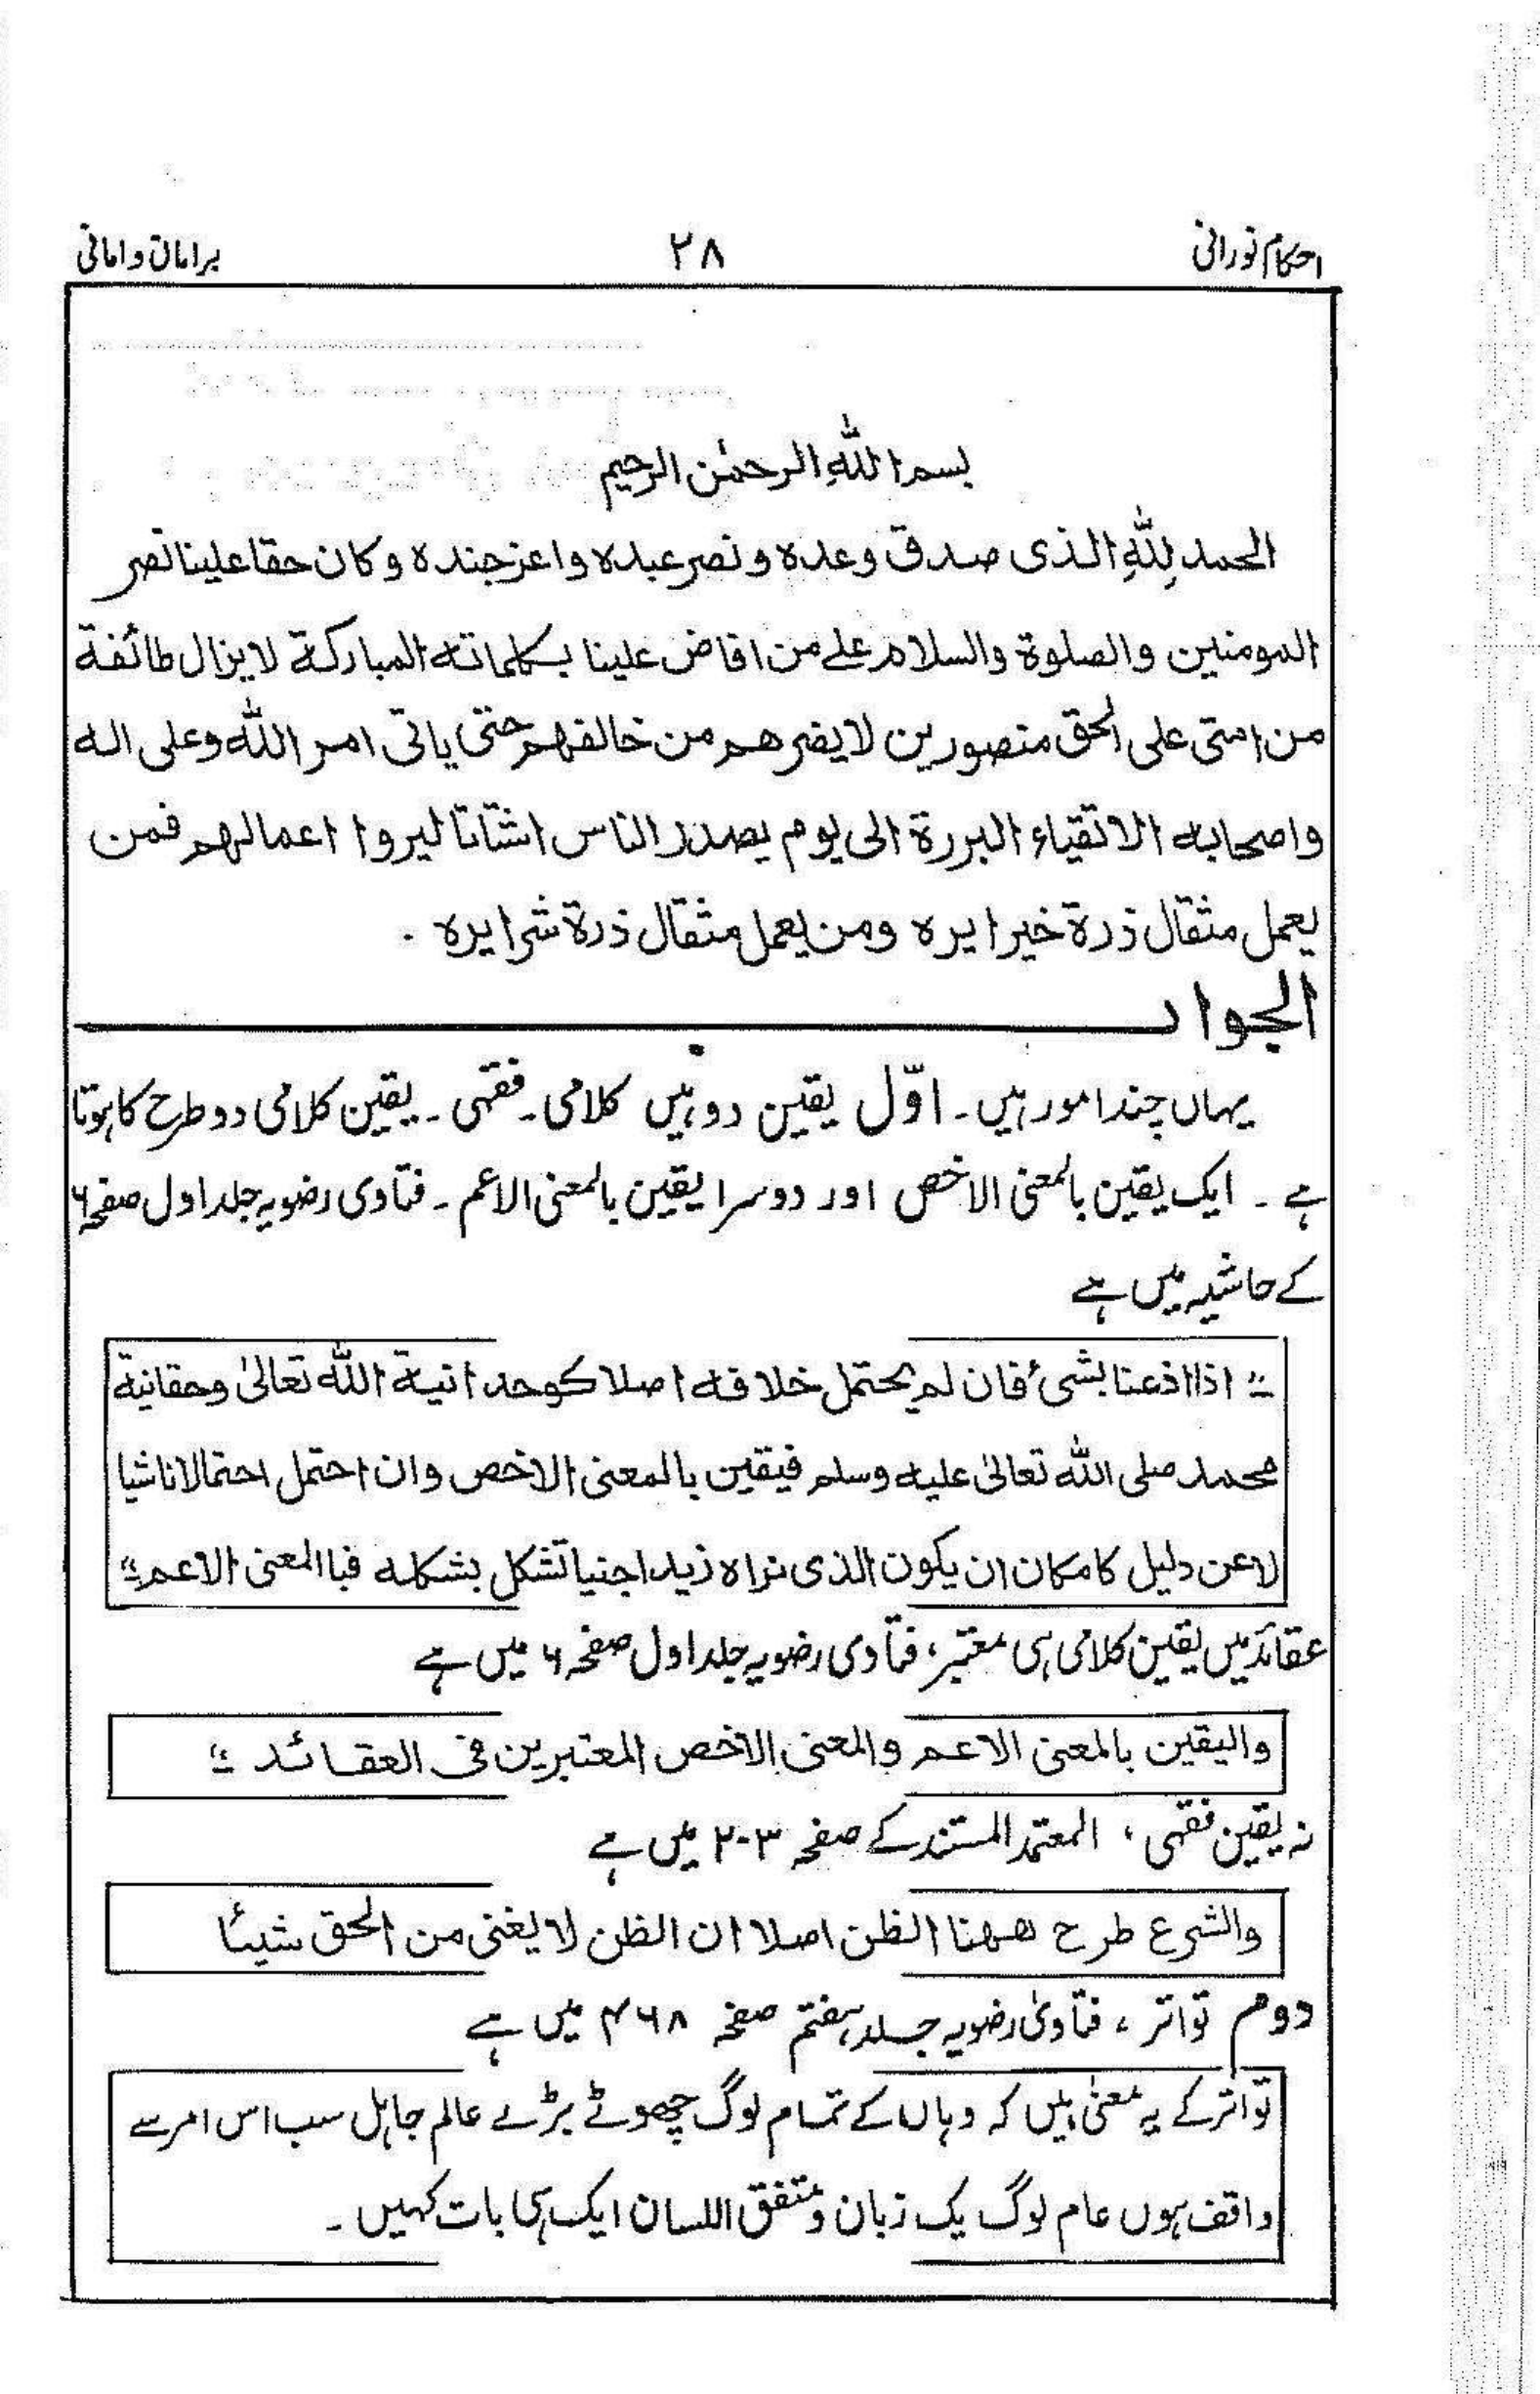 احکام نورانی ۲۸ برامان و امانی
بسم اللّٰہ الرحمٰن الرحیم
الحمد للّٰہِ الذی صدق وعدہ ونصر عبدہ واعز جندہ وکان حقا علینا نصر
المومنین والصلوۃ والسلام علے من افاض علینا بکلماتہ المبارکۃ لا یزال طائفۃ
من امتی علی الحق منصورین لا یضرھم من خالفھم حتیٰ یاتی امر اللّٰہ وعلی الہ
واصحابہ الاتقیاء البررۃ الی یوم یصدر الناس اشتاتا لیروا اعمالہم فمن
یعمل مثقال ذرۃ خیرا یرہ ومن یعمل مثقال ذرۃ شرا یرہ ۔
الجواب
یہاں چند امور ہیں ۔ اوّل یقین دو ہیں کلامی ۔ فقہی ۔ یقین کلامی دو طرح کا ہوتا
ہے ۔ ایک یقین بالمعنی الاخص اور دوسرا یقین بالمعنی الاعم ۔ فتاوی رضویہ جلد اول صفحہ ۶
کے حاشیہ میں ہے
" اذا اذعنا بشیٔ فان لم یحتمل خلافہ اصلا کوحدانیۃ اللّٰہ تعالیٰ وحقانیۃ
محمد صلی اللّٰہ تعالیٰ علیہ وسلم فیقین بالمعنی الاخص وان احتمل احتمالا ناشیا
لا عن دلیل کامکان ان یکون الذی نراہ زید اجنیا تشکل بشکلہ فبا المعنی الاعم "
عقائد میں یقین کلامی ہی معتبر، فتاوی رضویہ جلد اول صفحہ ۶ میں ہے
والیقین بالمعنی الاعم والمعنی الاخص المعتبرین فی العقائد "
نہ یقین فقہی ، المعتمد المستند کے صفحہ ۳-۲ میں ہے
والشرع طرح ھھنا الظن اصلا ان الظن لا یغنی من الحق شیئًا
دوم تواتر ، فتاویٰ رضویہ جلد ہفتم صفحہ ۴۶۸ میں ہے
تواتر کے یہ معنیٰ ہیں کہ وہاں کے تمام لوگ چھوٹے بڑے عالم جاہل سب اس امر سے
واقف ہوں عام لوگ یک زبان و متفق اللسان ایک ہی بات کہیں ۔